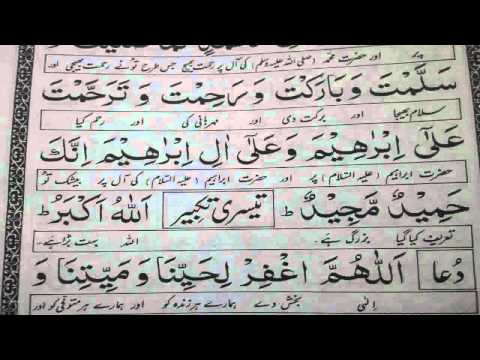 پر اور حضرت محمد (صلی اللہ علیہ وسلم) کی آل پر رحمت بھیج جس طرح تو نے رحمت بھیجی اور
سَلَّمْتَ وَبَارَكْتَ وَ رَحِمْتَ وَ تَرَحَّمْتَ
سلام بھیجا اور برکت دی اور مہربانی کی اور رحم کیا
عَلٰى اِبْرٰهِيْمَ وَ عَلٰى اٰلِ اِبْرٰهِيْمَ اِنَّكَ
حضرت ابراہیم (علیہ السلام) پر اور حضرت ابراہیم (علیہ السلام) کی آل پر بیشک تو
حَمِيْدٌ مَّجِيْدٌ ط تیسری تکبیر اَللّٰهُ اَكْبَرُ ط
تعریف کیا گیا بزرگ ہے۔ اللہ بہت بڑا ہے۔
دُعا اَللّٰهُمَّ اغْفِرْ لِحَيِّنَا وَ مَيِّتِنَا وَ
الٰہی بخش دے ہمارے ہر زندہ کو اور ہمارے ہر متوفی کو اور